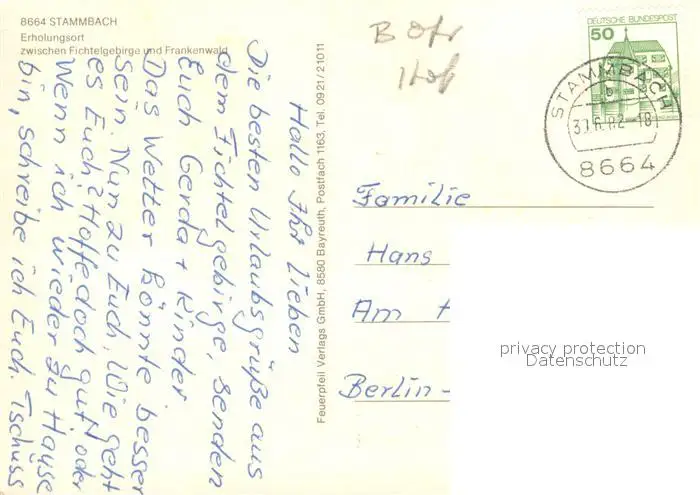 8664 STAMMBACH
Erholungsort
zwischen Fichtelgebirge und Frankenwald
Hallo Ihr Lieben
Die besten Urlaubsgrüße aus
dem Fichtelgebirge, senden
Euch Gerda + Kinder
Das Wetter könnte besser
sein. Nun zu Euch, Wie geht
es Euch? Hoffe doch gut! oder
Wenn ich wieder zu Hause
bin, schreibe ich Euch. Tschüss
Feuerpfeil Verlags GmbH, 8580 Bayreuth, Postfach 1163, Tel. 0921/21011
B Ofr
Hof
DEUTSCHE BUNDESPOST
50
STAMMBACH
b
6.82-18
8664
Familie
Hans
Am
Berlin-
privacy protection
Datenschutz